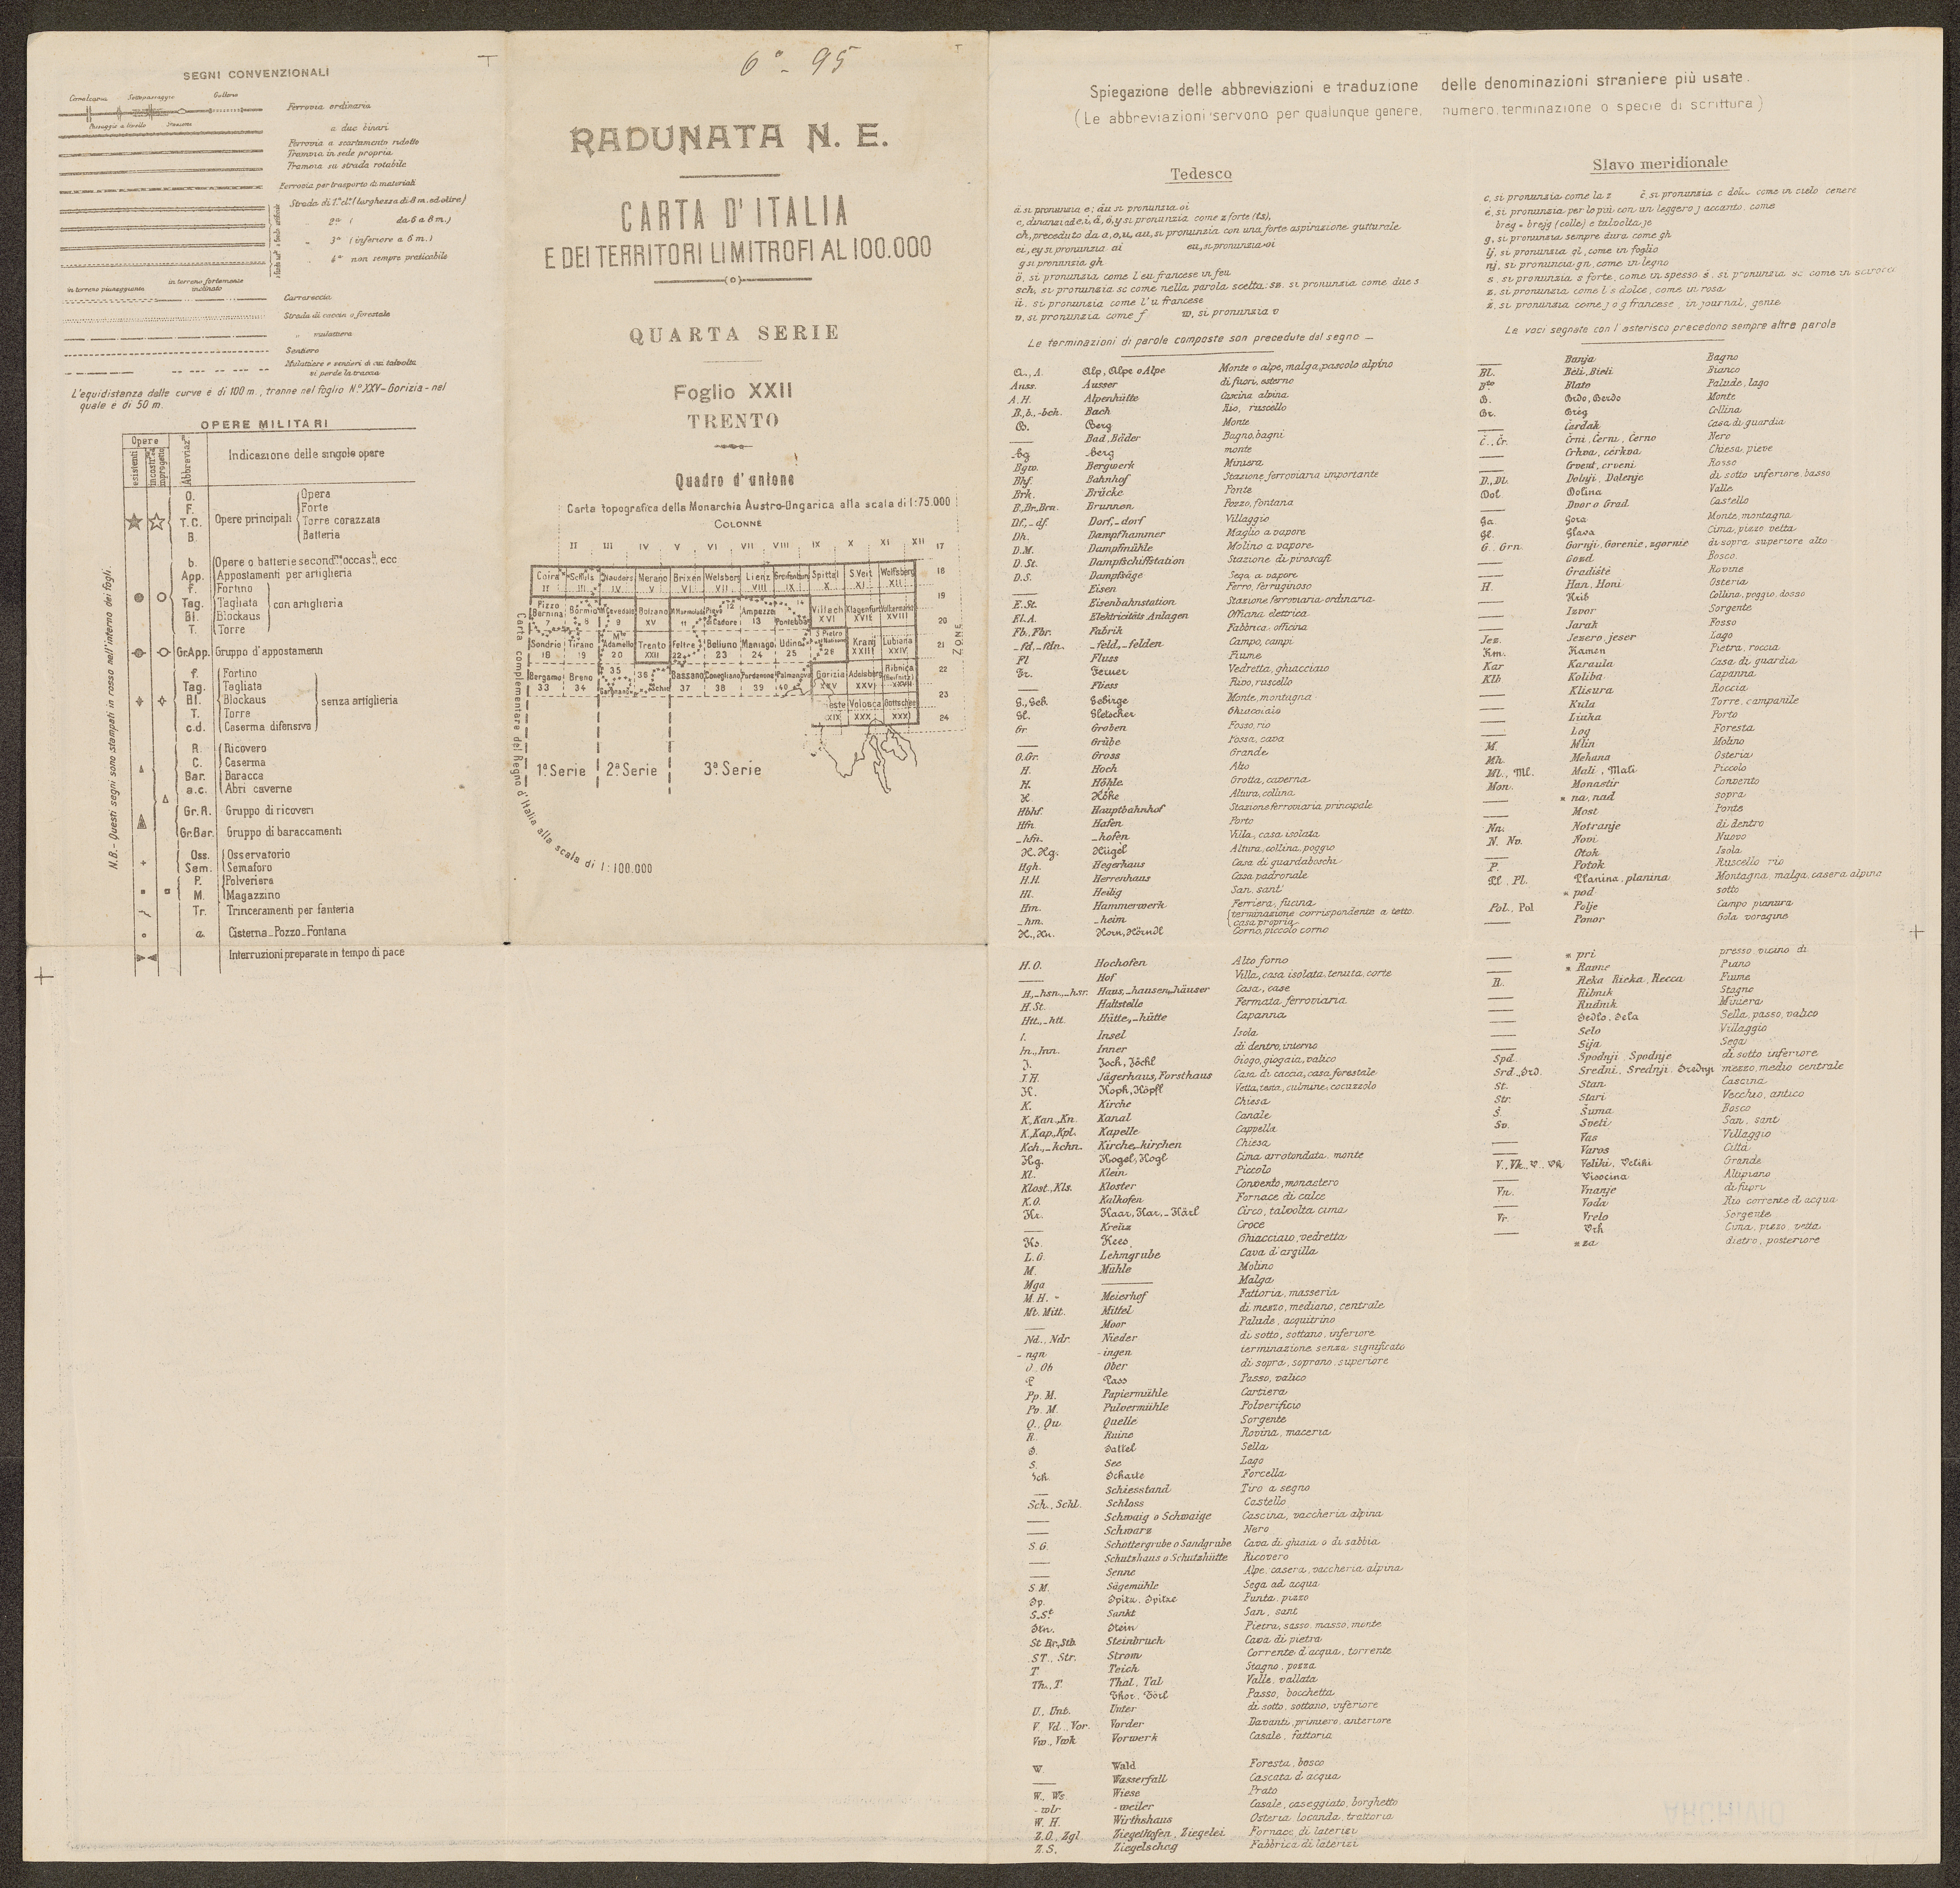 SEGNI CONVENZIONALI
Cavalcavia Sottopassaggio Galleria
Passaggio a livello Stazione
Ferrovia ordinaria
a due binari
Ferrovia a scartamento ridotto
Tramvia in sede propria
Tramvia su strada rotabile
Ferrovia per trasporto di materiali
Strada di 1ª cl. (larghezza di 8 m. ed oltre)
„ 2ª ( da 6 a 8 m.)
„ 3ª (inferiore a 6 m.)
„ 4ª non sempre praticabile
in terreno pianeggiante in terreno fortemente inclinato
Carrareccia
Strada di caccia o forestale
„ mulattiera
Sentiero
Mulattiere e sentieri di cui talvolta
si perde la traccia
L'equidistanza delle curve è di 100 m., tranne nel foglio N.º XXV-Gorizia-nel
quale è di 50 m.
OPERE MILITARI
Opere
esistenti
Abbreviaz.
Indicazione delle singole opere
O. Opera
F. Forte
T.C. Opere principali Torre corazzata
B. Batteria
b. Opere o batterie second. occas. ecc
App. Appostamenti per artiglieria
f. Fortino
Tag. Tagliata con artiglieria
Bl. Blockaus
T. Torre
Gr.App. Gruppo d'appostamenti
f. Fortino
Tag. Tagliata
Bl. Blockaus senza artiglieria
T. Torre
c.d. Caserma difensiva
R. Ricovero
C. Caserma
Bar. Baracca
a.c. Abri caverne
Gr.R. Gruppo di ricoveri
Gr.Bar. Gruppo di baraccamenti
Oss. Osservatorio
Sem. Semaforo
P. Polveriera
M. Magazzino
Tr. Trinceramenti per fanteria
a. Cisterna-Pozzo-Fontana
Interruzioni preparate in tempo di pace
N.B.- Questi segni sono stampati in rosso nell'interno dei fogli.
6ª - 95
RADUNATA N. E.
CARTA D'ITALIA
E DEI TERRITORI LIMITROFI AL 100.000
QUARTA SERIE
Foglio XXII
TRENTO
Quadro d'unione
Carta topografica della Monarchia Austro-Ungarica alla scala di 1:75.000
COLONNE
II III IV V VI VII VIII IX X XI XII
17
18
19
20
21
22
23
24
ZONE
Coira Schuls Nauders Merano Brixen Welsberg Lienz Greifenburg Spittal S. Veit Wolfsberg
II III IV V VI VII VIII IX X XI XII
Pizzo Bernina Bormio M. Cevedale Bolzano M. Marmolada Pieve di Cadore Ampezzo Pontebba Villach Klagenfurt Völkermarkt
7 8 9 XV 11 12 13 14 XVI XVII XVIII
Sondrio Tirano Mte Adamello Trento Feltre Belluno Maniago Udine S. Pietro al Natisone Krani Lubiana
18 19 20 XXII 22 23 24 25 26 XXIII XXIV
Bergamo Breno Schio Bassano Conegliano Pordenone Palmanova Gorizia Adelsberg Ribnica
33 34 35 36 37 38 39 40 XXV XXVI XXVII
Volosca Gottschee
XXX
1ª Serie 2ª Serie 3ª Serie
Carta complementare del Regno d'Italia alla scala di 1:100.000
Spiegazione delle abbreviazioni e traduzione delle denominazioni straniere più usate.
(Le abbreviazioni servono per qualunque genere, numero, terminazione o specie di scrittura)
Tedesco
ä si pronunzia e; äu si pronunzia oi
c, dinanzi ad e, i, ä, ö, y si pronunzia come z forte (ts),
ch, preceduto da a, o, u, au, si pronunzia con una forte aspirazione gutturale
ei, ey si pronunzia ai eu, si pronunzia oi
g si pronunzia gh
ö, si pronunzia come l'eu francese in feu
sch, si pronunzia sc come nella parola scelta: sz. si pronunzia come due s
ü. si pronunzia come l'u francese
v, si pronunzia come f w, si pronunzia v
Le terminazioni di parole composte son precedute dal segno –
A., A. Alp, Alpe o Alpe Monte o alpe, malga, pascolo alpino
Auss. Ausser di fuori, esterno
A.H. Alpenhütte Cascina alpina
B., b., -bch. Bach Rio, ruscello
B. Berg Monte
— Bad, Bäder Bagno, bagni
-bg -berg monte
Bgw. Bergwerk Miniera
Bhf. Bahnhof Stazione ferroviaria importante
Brk. Brücke Ponte
B., Br., Brn. Brunnen Pozzo, fontana
Df., -df. Dorf, -dorf Villaggio
Dh. Dampfhammer Maglio a vapore
D.M. Dampfmühle Molino a vapore
D.St. Dampfschiffstation Stazione di piroscafi
D.S. Dampfsäge Sega a vapore
— Eisen Ferro, ferruginoso
E.St. Eisenbahnstation Stazione ferroviaria ordinaria
El.A. Elektricitäts Anlagen Officina elettrica
Fb., Fbr. Fabrik Fabbrica, officina
-fd., -fdn. -feld, -felden Campo, campi
Fl Fluss Fiume
Fr. Ferner Vedretta, ghiacciaio
— Fliess Rivo, ruscello
G., Geb. Gebirge Monte, montagna
Gl. Gletscher Ghiacciaio
Gr Graben Fosso, rio
— Grübe Fossa, cava
G. Gr. Gross Grande
H. Hoch Alto
H. Höhle Grotta, caverna
H. Höhe Altura, collina
Hbhf. Hauptbahnhof Stazione ferroviaria principale
Hfn Hafen Porto
-hfn. -hofen Villa, casa isolata
H. Hg. Hügel Altura, collina, poggio
Hgh. Hegerhaus Casa di guardaboschi
H.H. Herrenhaus Casa padronale
Hl. Heilig San, sant'
Hm. Hammerwerk Ferriera, fucina
-hm. -heim terminazione corrispondente a tetto. casa propria
H., Hn. Horn, Hörndl Corno, piccolo corno
H.O. Hochofen Alto forno
— Hof Villa, casa isolata, tenuta, corte
H., -hsn., -hsr. Haus, -hausen, -häuser Casa, case
H.St. Haltstelle Fermata ferroviaria
Htt., -htt. Hütte, -hütte Capanna
I. Insel Isola
In., Inn. Inner di dentro, interno
J. Joch, Jöchl Giogo, giogaia, valico
J.H. Jägerhaus, Forsthaus Casa di caccia, casa forestale
K. Koph, Köpfl Vetta, testa, culmine, cocuzzolo
K. Kirche Chiesa
K., Kan., Kn. Kanal Canale
K., Kap., Kpl. Kapelle Cappella
Kch., -kchn. Kirche, -kirchen Chiesa
Kg. Kogel, Kogl Cima arrotondata, monte
Kl. Klein Piccolo
Klost., Kls. Kloster Convento, monastero
K.O. Kalkofen Fornace di calce
Kr. Kaar, Kar, -Kärl Circo, talvolta cima
— Kreüz Croce
Ks. Kees Ghiacciaio, vedretta
L.G. Lehmgrube Cava d'argilla
M. Mühle Molino
Mga — Malga
M.H. Meierhof Fattoria, masseria
Mt. Mitt. Mittel di mezzo, mediano, centrale
— Moor Palude, acquitrino
Nd., Ndr. Nieder di sotto, sottano, inferiore
-ngn -ingen terminazione senza significato
O., Ob Ober di sopra, soprano, superiore
P Pass Passo, valico
Pp. M. Papiermühle Cartiera
Pv. M. Pulvermühle Polverificio
Q., Qu. Quelle Sorgente
R. Ruine Rovina, maceria
S. Sattel Sella
S. See Lago
Sch. Scharte Forcella
— Schiesstand Tiro a segno
Sch., Schl. Schloss Castello
— Schwaig o Schwaige Cascina, vaccheria alpina
— Schwarz Nero
S.G. Schottergrube o Sandgrube Cava di ghiaia o di sabbia
— Schutzhaus o Schutzhütte Ricovero
— Senne Alpe, casera, vaccheria alpina
S M. Sägemühle Sega ad acqua
Sp. Spitz, Spitze Punta, pizzo
S., St Sankt San, sant
Stn. Stein Pietra, sasso, masso, monte
St Br., Stb. Steinbruch Cava di pietra
ST., Str. Strom Corrente d'acqua, torrente
T Teich Stagno, pozza
Th., T Thal, Tal Valle, vallata
Thor, Törl Passo, bocchetta
U., Unt. Unter di sotto, sottano, inferiore
V. Vd., Vor. Vorder Davanti, primiero, anteriore
Vw., Vwk Vorwerk Casale, fattoria
W Wald Foresta, bosco
— Wasserfall Cascata d'acqua
W., Ws. Wiese Prato
-wlr -weiler Casale, caseggiato, borghetto
W. H. Wirthshaus Osteria, locanda, trattoria
Z.O., Zgl Ziegelhofen, Ziegelei Fornace di laterizi
Z.S. Ziegelschag Fabbrica di laterizi
Slavo meridionale
c, si pronunzia come la z č, si pronunzia c dolce come in cielo cenere
e, si pronunzia per lo più con un leggero j accanto, come
breg = brejg (colle) e talvolta je
g, si pronunzia sempre dura come gh
lj, si pronunzia gl, come in foglio
nj, si pronuncia gn, come in legno
s, si pronunzia s forte, come in spesso š. si pronunzia sc come in scirocco
z. si pronunzia come l's dolce, come in rosa
ž. si pronunzia come j o g francese, in journal, genie
Le voci segnate con l'asterisco precedono sempre altre parole
— Banja Bagno
Bl. Beli, Bieli Bianco
Bto Blato Palude, lago
B. Brdo, Berdo Monte
Br. Brēg Collina
— Čardak Casa di guardia
Č., Čr. Črni, Černi, Černo Nero
— Crkva, cerkva Chiesa, pieve
— Crvent, crveni Rosso
D., Dl. Dolnji, Dolenje di sotto inferiore, basso
Dol Dolina Valle
— Dvor o Grad. Castello
Ga Gora Monte, montagna
Gl. Glava Cima, pizzo vetta
G. Grn. Gornji, Gorenie, zgornie di sopra superiore alto
— Gozd Bosco
— Gradište Rovine
H. Han, Honi Osteria
— Hrib Collina, poggio, dosso
— Izvor Sorgente
— Jarak Fosso
Jez. Jezero jeser Lago
Km. Kamen Pietra, roccia
Kar Karaula Casa di guardia
Klb Koliba Capanna
— Klisura Roccia
— Kula Torre, campanile
— Luka Porto
— Log Foresta
M. Mlin Molino
Mh. Mehana Osteria
Ml., Ml. Mali, Mali Piccolo
Mon. Monastir Convento
— * na, nad sopra
— Most Ponte
Nn. Notranje di dentro
N. Nv. Novi Nuovo
— Otok Isola
P. Potok Ruscello rio
Pl., Pl. Planina, planina Montagna, malga, casera alpina
* pod sotto
Pol., Pol Polje Campo pianura
— Ponor Gola voragine
— * pri presso vicino di
— * Ravne Piano
R. Reka Rieka, Recca Fiume
— Ribnik Stagne
— Rudnik Miniera
— Sedlo, Sela Sella, passo, valico
— Selo Villaggio
— Sija Sega
Spd. Spodnji, Spodnje di sotto inferiore
Srd., Srd. Sredni, Srednji, Srednji mezzo, medio centrale
St. Stan Cascina
Str. Stari Vecchio, antico
Š. Šuma Bosco
Sv. Sveti San, sant
— Vas Villaggio
— Varos Città
V., Vk., V., Vk Veliki, Veliki Grande
Visocina Altipiano
Vn. Vnanje di fuori
— Voda Rio corrente d'acqua
Vr. Vrelo Sorgente
— Vrh Cima, pizzo, vetta
* za dietro, posteriore